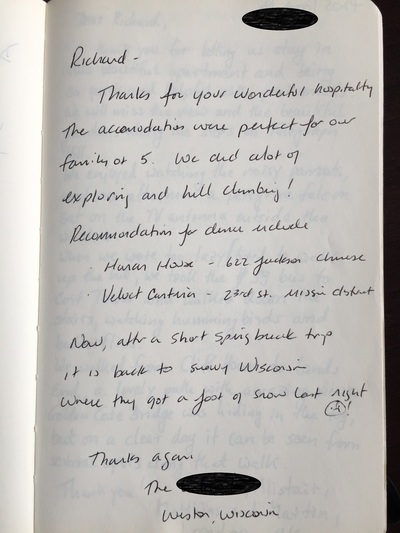 Richard -
Thanks for your wonderful hospitality
The accomodations were perfect for our
family of 5. We did alot of
exploring and hill climbing!
Recommendations for dinner include
· Hunan House - 622 Jackson chinese
· Velvet Cantina - 23rd st. mission district
Now, after a short spring break trip
it is back to snowy Wisconsin
where they got a foot of snow last night!
Thanks again
The
Weston, Wisconsin